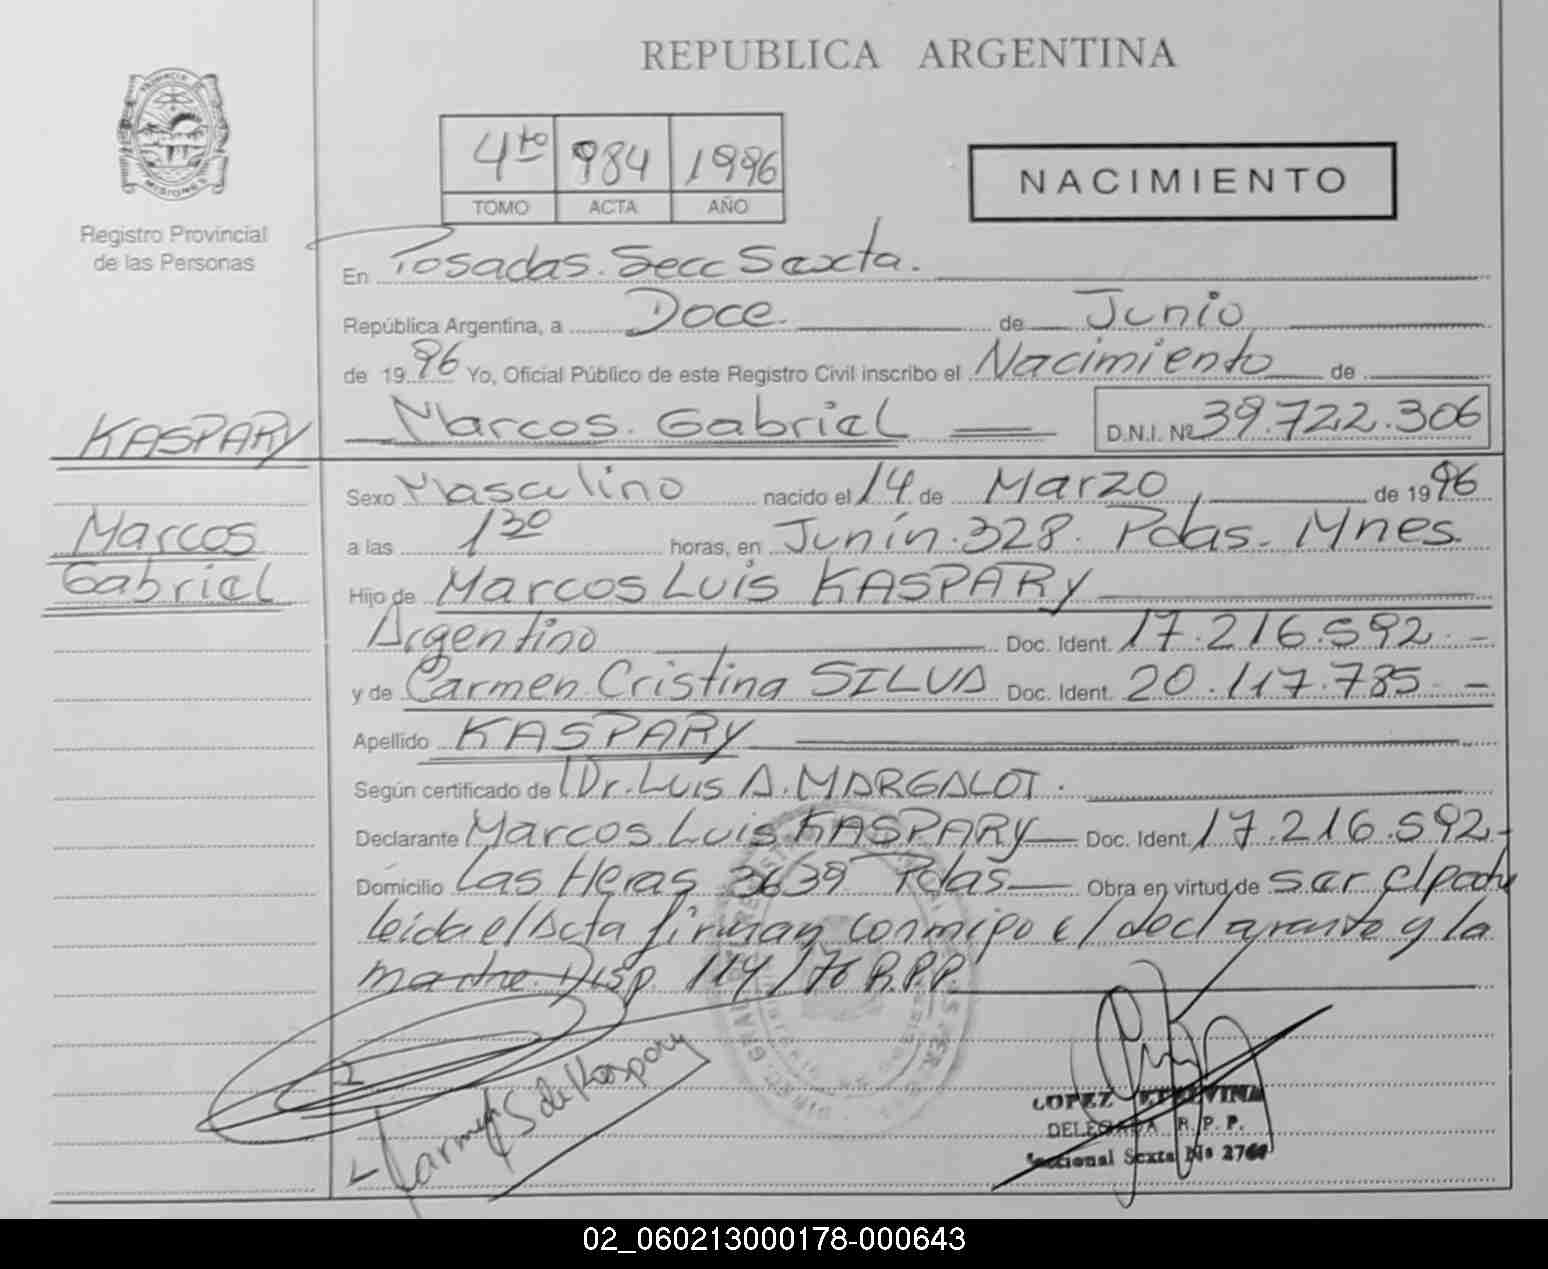 REPUBLICA ARGENTINA
PROVINCIA DE
MISIONES
Registro Provincial
de las Personas
4to 984 1996
TOMO ACTA AÑO
NACIMIENTO
En Posadas. Secc Sexta.
República Argentina, a Doce. de Junio
de 1996 Yo, Oficial Público de este Registro Civil inscribo el Nacimiento de
KASPARY
Marcos. Gabriel D.N.I. Nº 39.722.306
Sexo Masculino nacido el 14 de Marzo, de 1996
Marcos
a las 1 30 horas, en Junín. 328. Pdas. Mnes.
Gabriel
Hijo de Marcos Luis KASPARY
Argentino Doc. Ident. 17.216.592.-
y de Carmen Cristina SILVA Doc. Ident. 20.117.785.-
Apellido KASPARY
Según certificado de Dr. Luis A. MARGALOT.
Declarante Marcos Luis KASPARY Doc. Ident. 17.216.592-
Domicilio Las Heras 3639 Pdas Obra en virtud de ser el padre
leida el Acta firman conmigo el declarante y la
madre. Disp. 114/76 R.P.P.
Carmen S de Kaspary
LOPEZ ETELVINA
DELEGADA R. P. P.
Seccional Sexta Nº
02_060213000178-000643